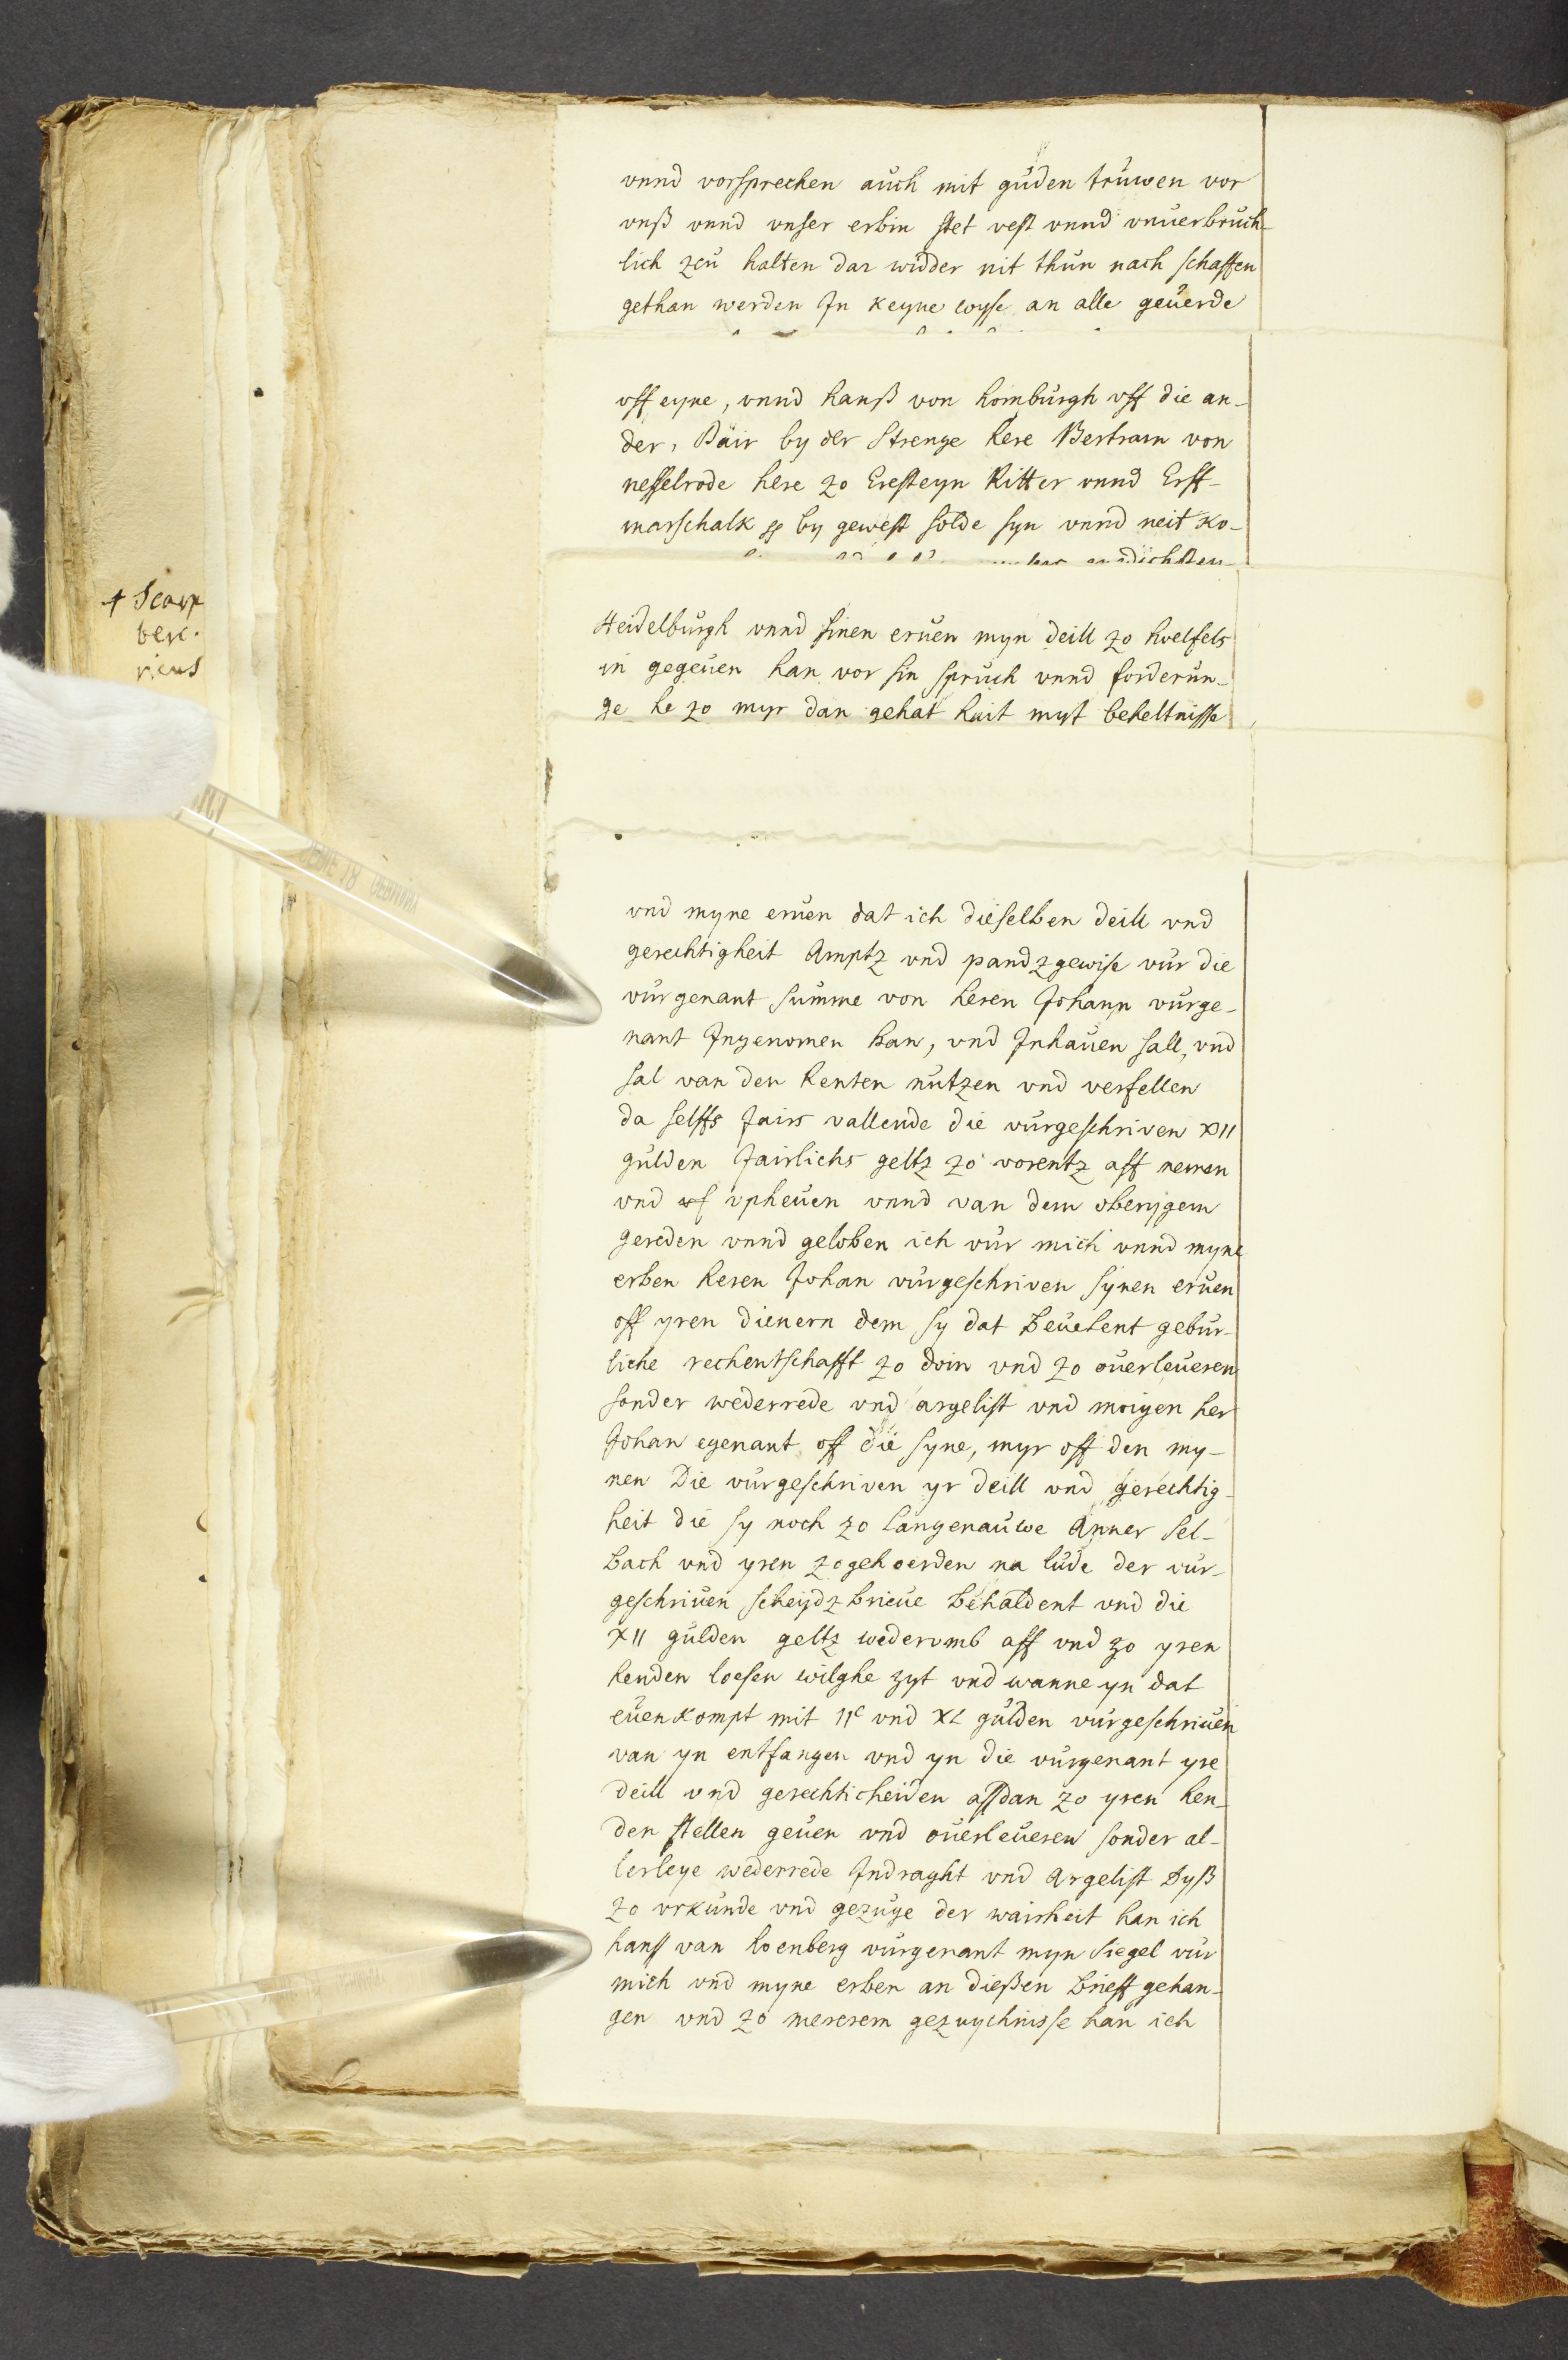 vnnd vorsprechen auch mit gůden trůwen vor
vnß vnnd vnser erbin stet vest vnnd vnůerbrůch-
lich zců halten dar widder nit thůn nach schaffen
gethan werden Jn keyne wyse an alle geůerde
off eyne, vnnd hanß von hombůrgh vff die an-
der, Dair by der Strenge here Bertram von
nesselrode here zo Eresteyn Ritter vnnd Erff-
marschalk by gewest solde syn vnnd neit ko-
Heidelbůrgh vnnd sinen erůen myn deill zo hoelfels
in gegeůen han vor sin sprůch vnnd forderůn-
ge he zo myr dan gehat hait myt beheltnisse
† Scarp
ber.
ricus
vnd myne erůen dat ich dieselben deill vnd
gerechtigheit Amptz vnd pandzgewise vůr die
vůrgenant sůmme von heren Johann vůrge-
nant Jngenomen han, vnd Jnhaůen sall, vnd
sal van den Renten nůtzen vnd verfellen
da selffs Jairs vallende die vůrgeschriven XII
gůlden Jairlichs geltz zo vorentz aff nemen
vnd vpheůen vnnd van dem oberygem
gereden vnnd geloben ich vůr mich vnnd myne
erben heren Johan vůrgeschriven synen erůen
off yren dienern dem sy dat beůelent gebůr-
liche rechentschafft zo doin vnd zo oůerleůeren
sonder wederrede vnd argelist vnd moigen her
Johan egenant off die syne, myr off den my-
nen Die vůrgeschriven yr deill vnd gerechtig-
heit die sy noch zo langenaůwe Anner sel-
bach vnd yren zogehoerden na lůde der vůr-
geschriůen scheydzbrieůe behaldent vnd die
XII gůlden geltz wederomb aff vnd zo yren
henden loesen wilghe zyt vnd wanne yn dat
eůenkompt mit IIc vnd XL gůlden vůrgeschriůen
van yn entfangen vnd yn die vůrgenant yre
deill vnd gerechticheiden assdan zo yren hen-
den stellen geůen vnd oůerleůeren sonder al-
lerleye wederrede Jndraght vnd Argelist Dyß
zo vrkůnde vnd gezůge der wairheit han ich
hanß van hoenberg vůrgenant myn Siegel vůr
mich vnd myne erben an dießen brieff gehan-
gen vnd zo mererem gezuychnisse han ich